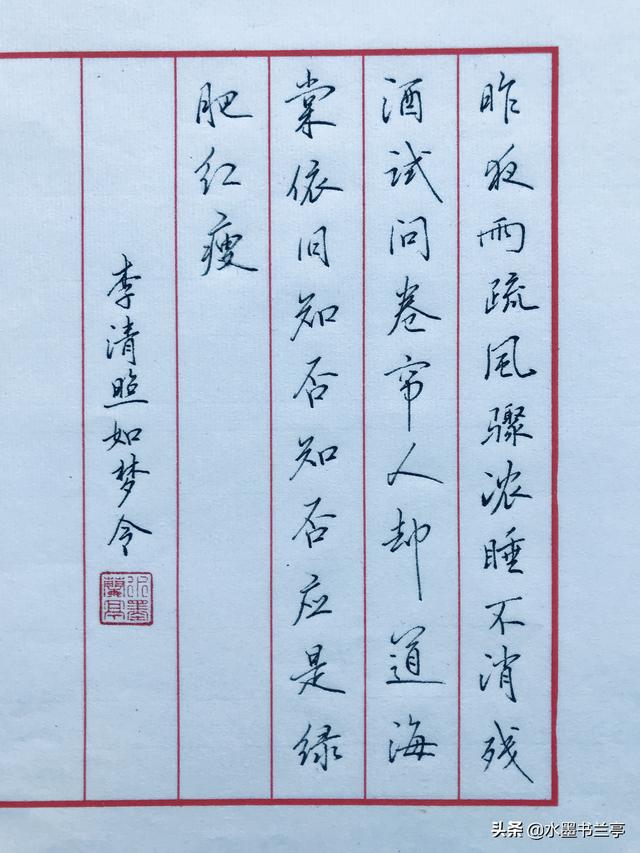 昨夜雨疏风骤浓睡不消残
酒试问卷帘人却道海
棠依旧知否知否应是绿
肥红瘦
李清照如梦令
水墨
蘭亭
头条 @水墨书兰亭